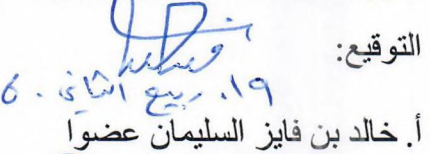 التوقيع:
١٩. ربيع الثاني.
أ. خالد بن فايز السليمان عضوا